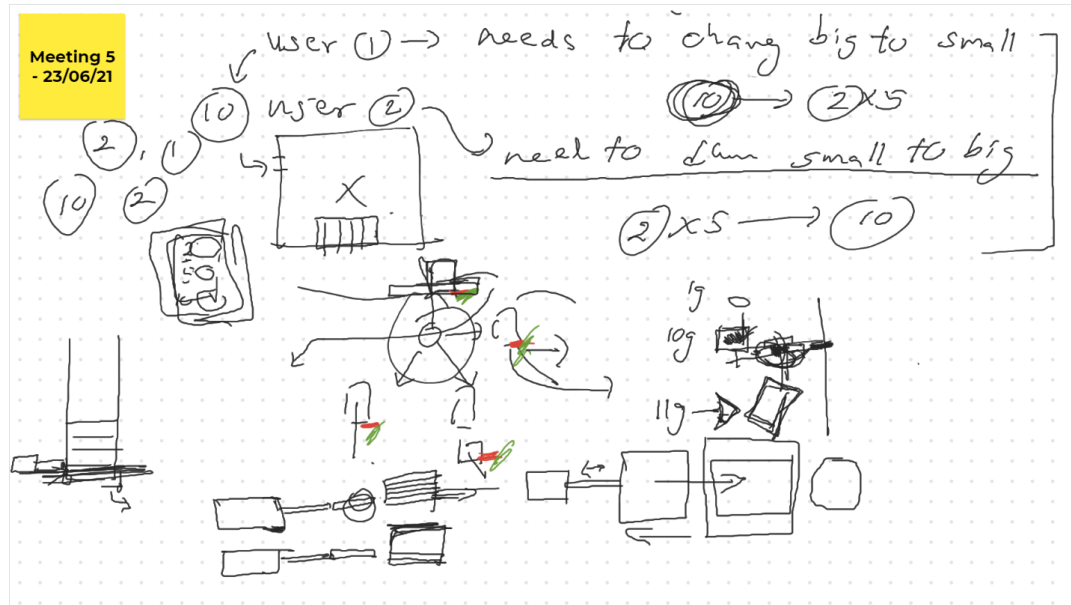 Meeting 5
- 23/06/21
user ① → needs to chang big to small
10 → 2 x5
10 user ②
need to small to big
2, 1
10 2
X
2 x5 → 10
2
5
1g
10g
11g